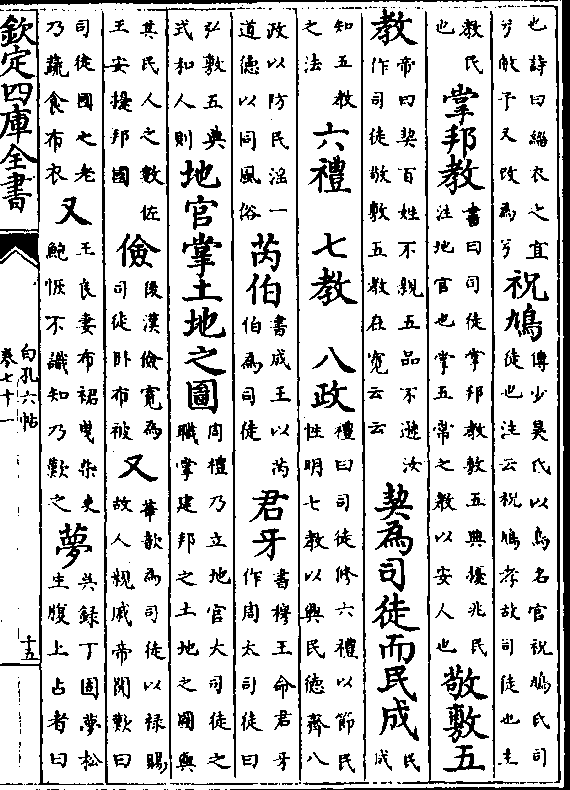 也詩曰緇衣之宜兮敝予又改為兮祝鳩傳少昊氏以鳥名官祝鳩氏司徒也注云祝鳩孝故司徒也主
教民也掌邦教書曰司徒掌邦教敷五典擾兆民注地官也掌五常之教以安人也敬敷五
教帝曰契百姓不親五品不遜汝作司徒敬敷五教在寛云云契為司徒而民成民成
知五教之法六禮 七教 八政禮曰司徒修六禮以節民性明七教以興民德齊八
政以防民淫一道德以同風俗芮伯書成王以芮伯為司徒君牙書穆王命君牙作周太司徒曰
弘敷五典式和人則地官掌土地之圖周禮乃立地官大司徒之職掌建邦之土地之圖與
其民人之數佐王安擾邦國儉後漢儉寛為司徒卧布被又華歆為司徒以禄賜故人親戚帝聞歎曰
司徒國之老乃蔬食布衣又王良妻布裙曳柴史鮑恢不識知乃歎之夢吳録丁固夢松生腹上占者曰
欽定四庫全書
白孔六帖
卷七十一
十五